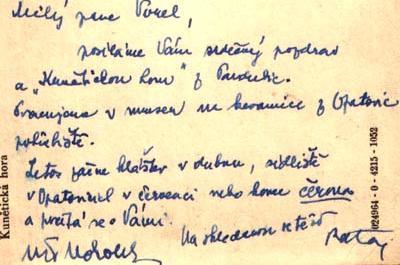 Milý pane Vorel,
posíláme Vám srdečný pozdrav
a „Kunětickou horu" z Pardubic.
Pracujeme v museu na keramice z Opatovic
pohřebiště.
Letos začne klášter v dubnu, sídliště
v Opatovicích v červenci nebo konce června
a počítá se s Vámi.
Na shledanou se těší
Kunětická hora
024964-0-4215-1052